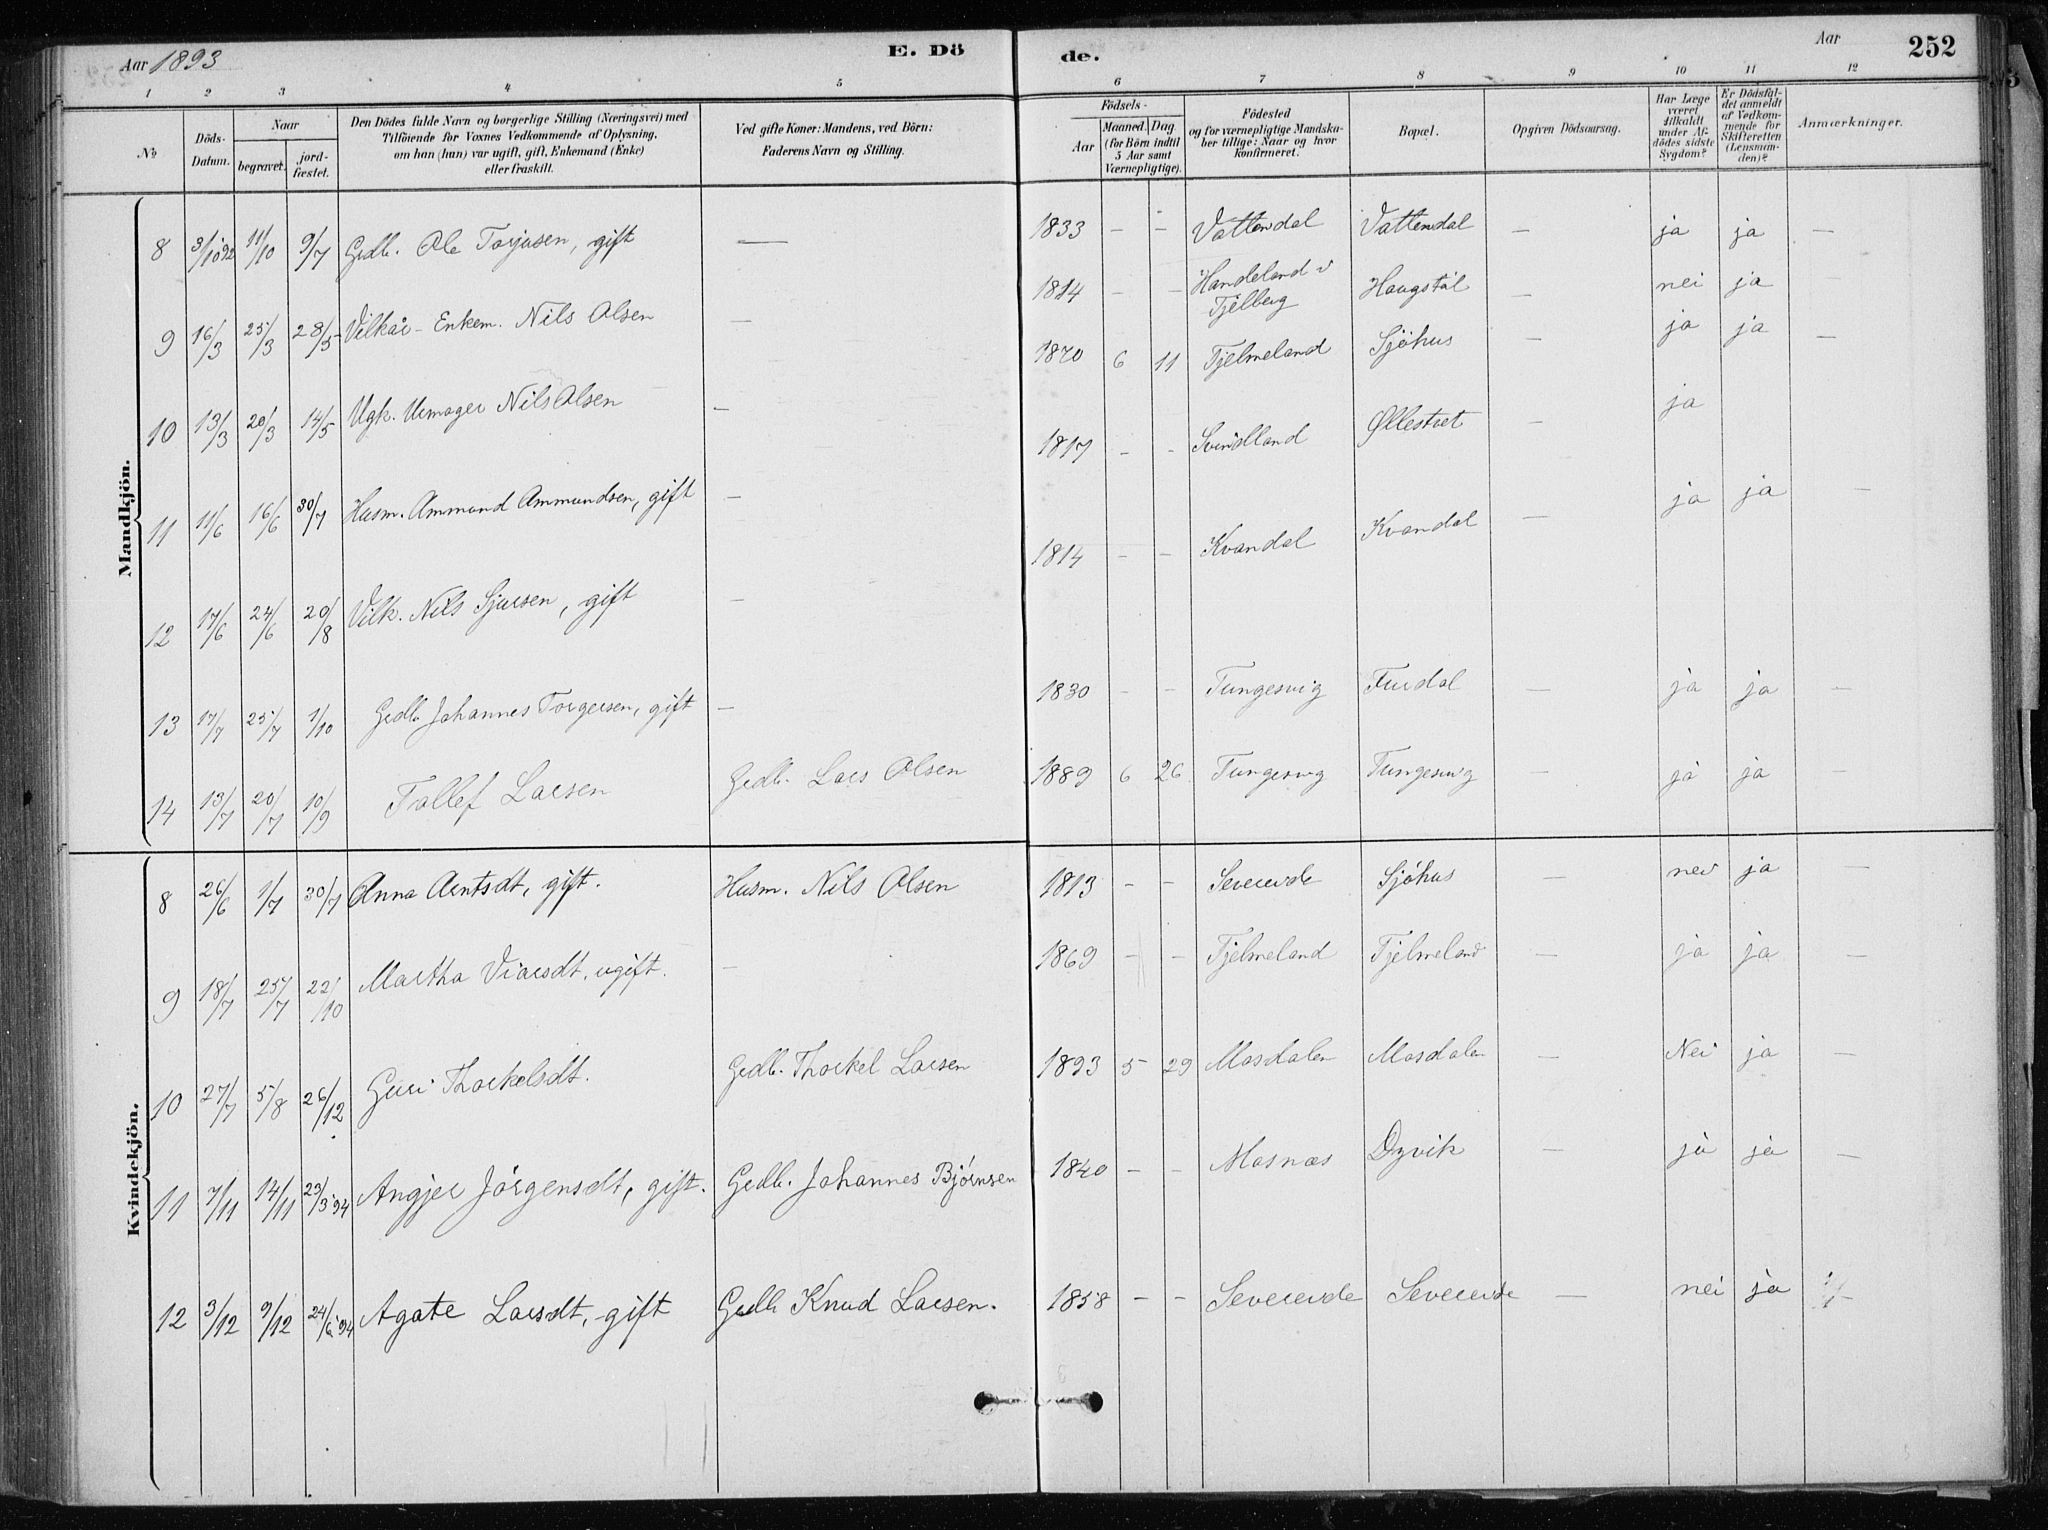 Aar 1893 E. Dö de. Aar 252
1 2 3 4 5 6 7 8 9 10 11 12
№ Döds-Datum. Naar begravet. jordfæstet. Den Dödes fulde Navn og borgerlige Stilling (Næringsvei) med Tilföiende for Voxnes Vedkommende af Oplysning, om han (hun) var ugift, gift, Enkemand (Enke) eller fraskilt. Ved gifte Koner: Mandens, ved Börn: Faderens Navn og Stilling. Födsels- Aar Maaned. Dag. (for Börn indtil 5 Aar samt Værnepligtige). Födested og for værnepligtige Mandskaber tillige: Naar og hvor konfirmeret. Bopæl. Opgiven Dödsaarsag. Har Læge været tilkaldt under Afdödes sidste Sygdom? Er Dödsfaldet anmeldt af Vedkommende for Skifteretten (Lensmanden)? Anmærkninger.
Mandkjön.
8 3/10 92 11/10 9/7 Gedb. Ole Torjusen, gift — 1833 - - Vattendal Vattendal — ja ja —
9 16/3 25/3 28/5 Vilkår-Enkem. Nils Olsen — 1814 - - Handeland v Tjelberg Haugstøl — nei ja —
10 13/3 20/3 14/5 Ugk. Urmager Nils Olsen — 1870 6 11 Tjelmeland Sjöhus — ja ja —
11 11/6 16/6 30/7 Husm. Ammund Ammundsen, gift — 1817 - - Svindland Øllestvet — ja
12 17/6 24/6 20/8 Vilk. Nils Sjursen, gift — 1814 - - Kvandal Kvandal — ja ja —
13 17/7 25/7 1/10 Gedb. Johannes Torgersen, gift — 1830 - - Tungesvig Furdal — ja ja —
14 13/7 20/7 10/9 Tollef Larsen Gedb. Lars Olsen 1889 6 26 Tungesvig Tungesvig — ja ja —
Kvindekjön.
8 26/6 1/7 30/7 Anna Arntsdt, gift. Husm. Nils Olsen 1813 - - Severeide Sjöhus — nei ja —
9 18/7 25/7 22/10 Martha Viarsdt, ugift. — 1869 - - Tjelmeland Tjelmeland — ja ja —
10 27/7 5/8 26/12 Guri Thorkelsdt. Gedb. Thorkel Larsen 1893 5 29 Mosdalen Mosdalen — Nei ja —
11 7/11 14/11 23/3 '94 Angjer Jörgensdt, gift. Gedb. Johannes Bjørnsen 1840 - - Mosnæs Dyvik — ja ja —
12 3/12 9/12 24/6 '94 Agate Larsdt, gift Gedb Knud Larsen. 1858 - - Severeide Severeide — nei ja